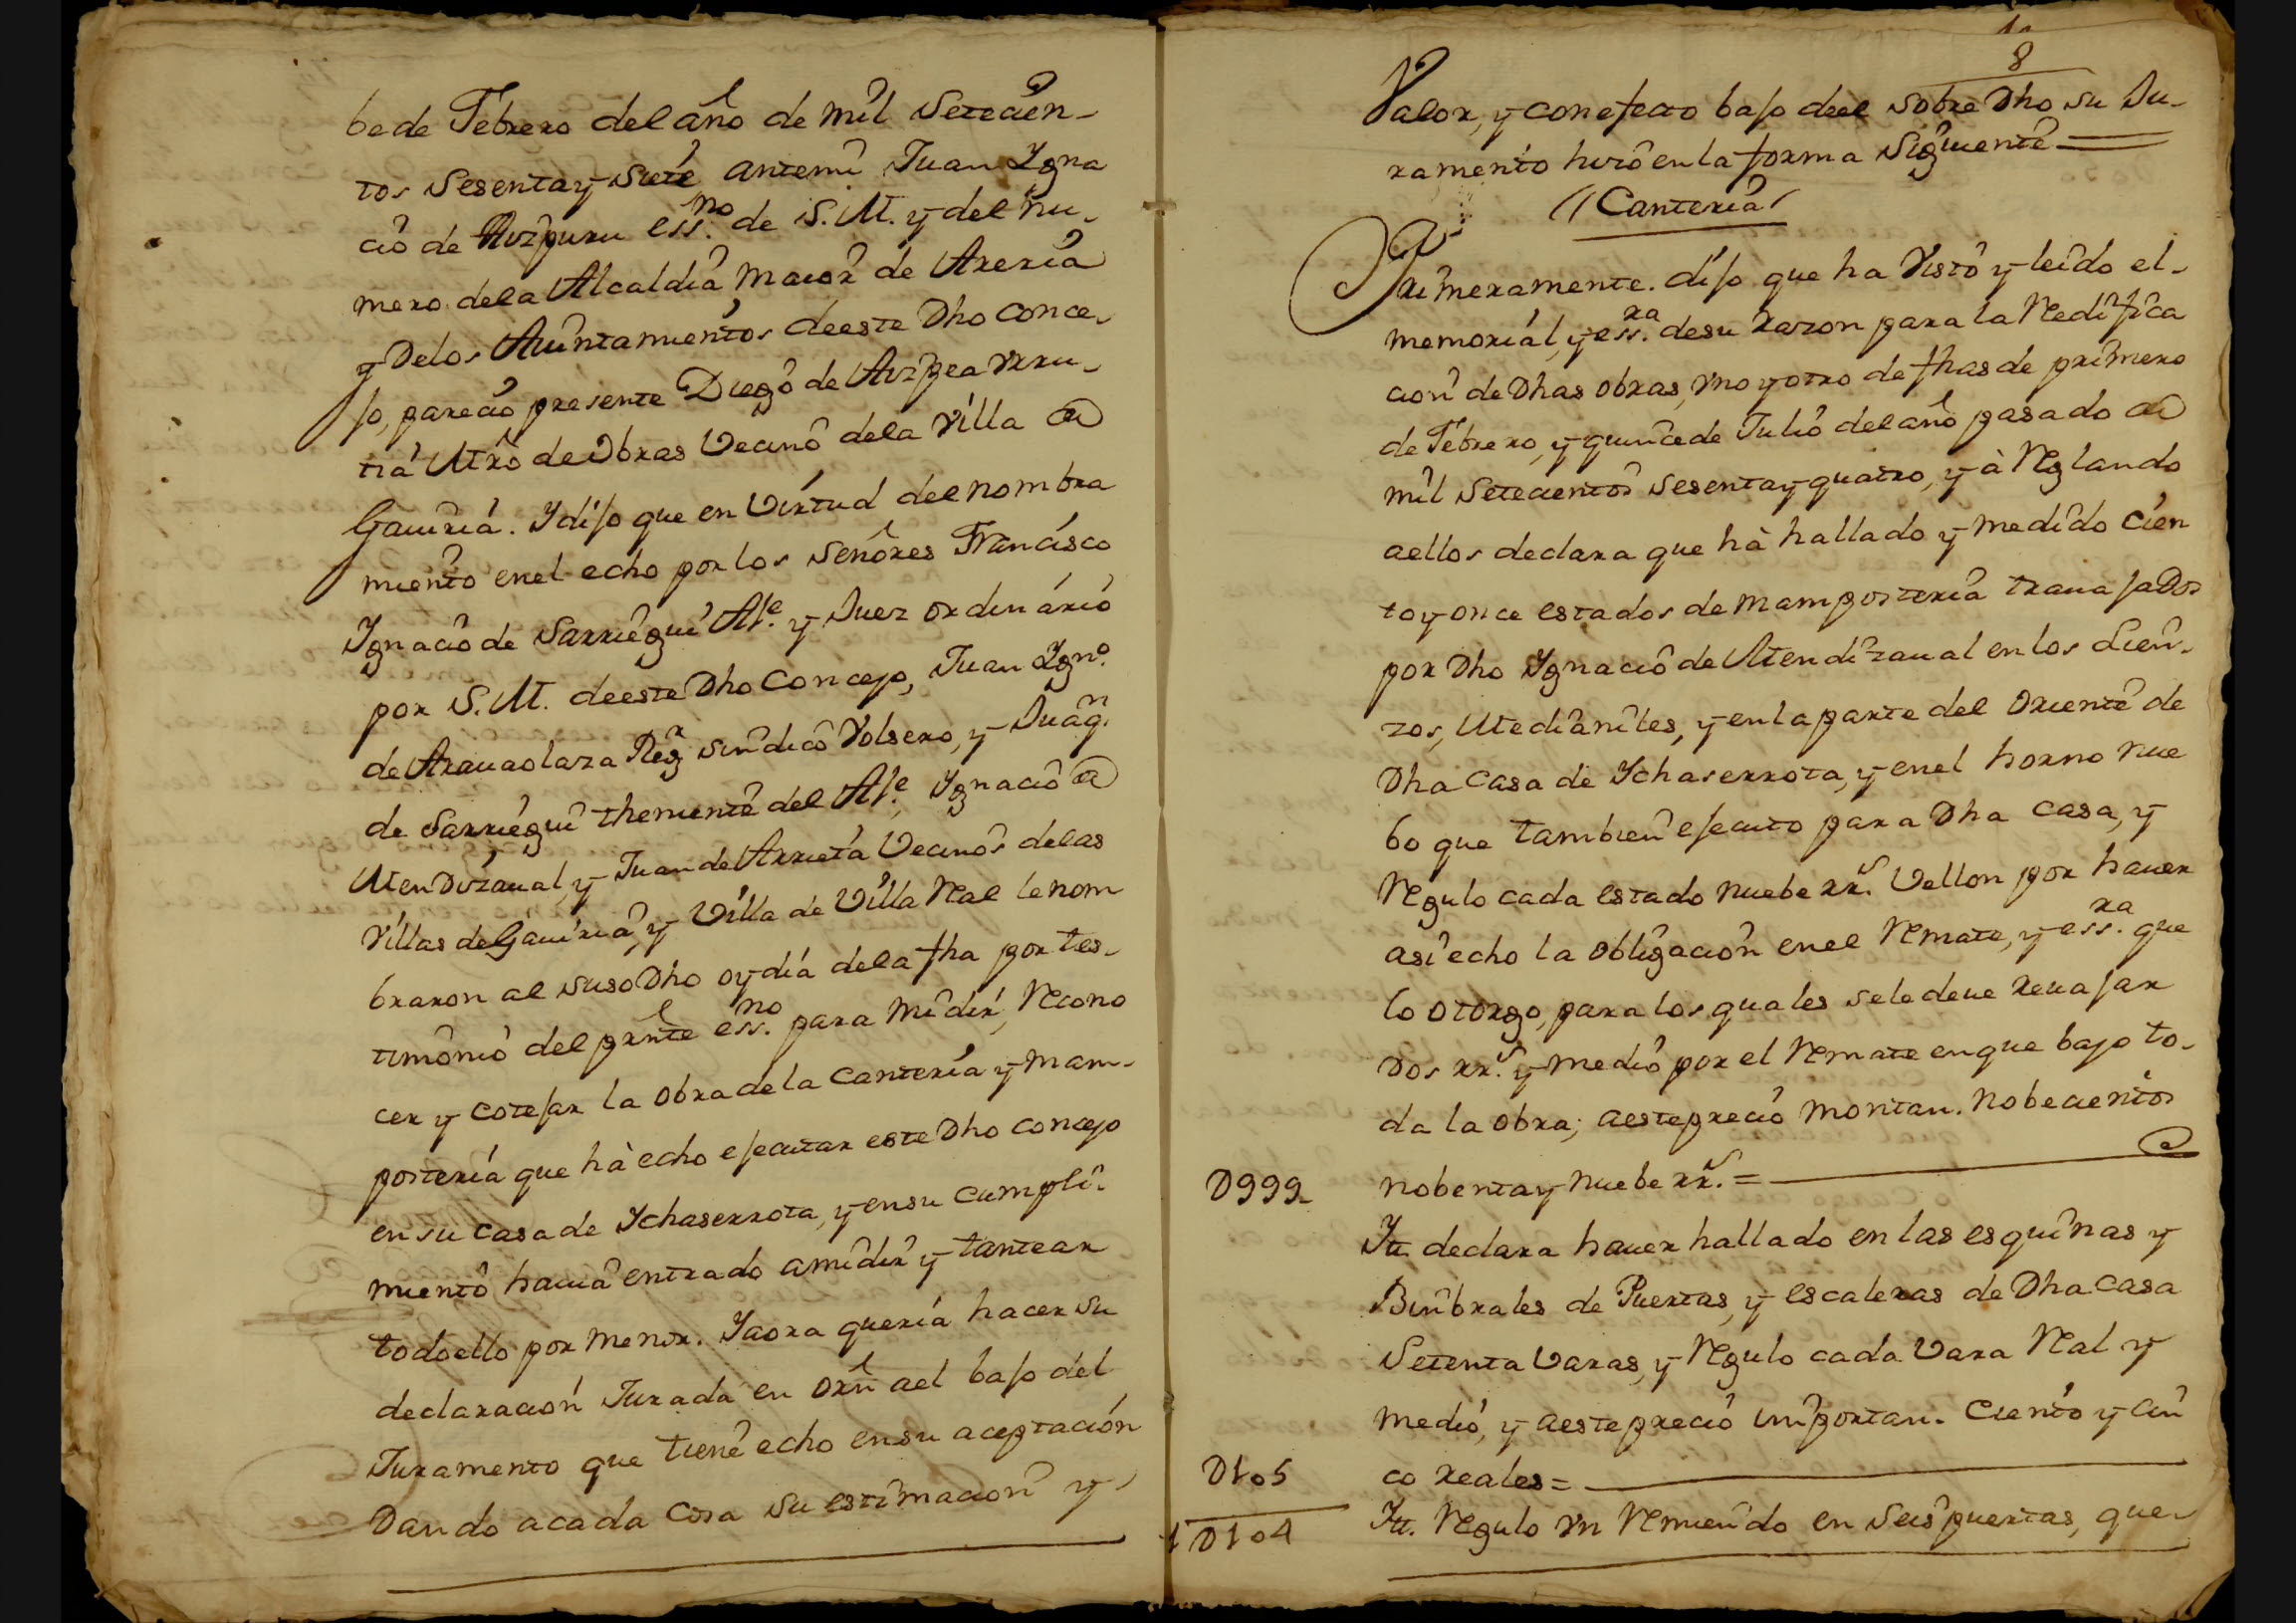 be de Febrero del año de mil Setecien-
tos Sesenta y Siete antemi Juan Ygna
cio de Aizpuru ess.no de S. M. y del nu-
mero de la Alcaldia maior de Areria
y Delos Aiuntamientos deeste Dho Conce-
jo, parecio presente Diego de Aizpea Urru-
tia Mro de Obras Vecino dela Villa de
Gauiria. Y dijo que en Virtud del nombra
miento enel echo por los Señores Francisco
Ygnacio de Sarriegui Al.e y Juez ordinario
por S. M. deeste Dho Concejo, Juan Ygn.o
de Arauaolaza Reg.r sindico Volsero, y Juaq.n
de Sarriegui theniente del Al.e Ygnacio de
Mendizaual, y Juan de Arrieta Vecinos delas
Villas de Gauiria, y Villa de Villa Real le nom
braron al suso Dho oy dia dela fha por tes-
timonio del prnte ess.no para Midir, Recono
cer y cotejar la obra dela Canteria y mam-
posteria que hà echo ejecutar este Dho concejo
en su Casa de Ychaserrota, y ensu cumpli-
miento hauia entrado a midir y tantear
todo ello por menor. Y aora queria hacer su
declaracion Jurada en orn ael bajo del
Juramento que tiene echo ensu aceptación
Dando acada cosa su estimacion y
8
Valor, y con efecto bajo deel sobre Dho su Ju-
ramento hizo en la forma Siguiente =
// Canteria /
Primeramente. dijo que ha Visto y leido el-
memorial, y ess.ra desu Razon para la Redifica
cion de Dhas obras, Vno y otro de fhas de primero
de Febrero, y quince de Julio del año pasado de
mil Setecientos Sesenta y quatro, y à Reglando
aellos declara que hà hallado y medido Cien
to y once estados de mamposteria trauajados
por Dho Ygnacio de Mendizaual en los Lien-
zos, Medianiles, y en la parte del oriente de
Dha Casa de Ychaserrota, y enel horno nue
bo que tambien ejecuto para Dha Casa, y
Regulo cada estado nuebe rr.s Vellon por hauer
asi echo la obligacion enel Remate, y ess.ra que
lo otorgo, para los quales se le deue Reuajar
dos rr.s y medio por el Remate en que bajo to-
da la obra; aesteprecio montan. Nobecientos
D999 nobenta y nuebe rr.s =
Yt. declara hauer hallado en las esquinas y
Binbrales de Puertas, y escaleras de Dha casa
Setenta Varas, y Regulo cada Vara Real y
medio, y aesteprecio importan. Ciento y cin
D105 co Reales =
1D104 Yt. Regulo Vn Remiendo en Seis puertas, que